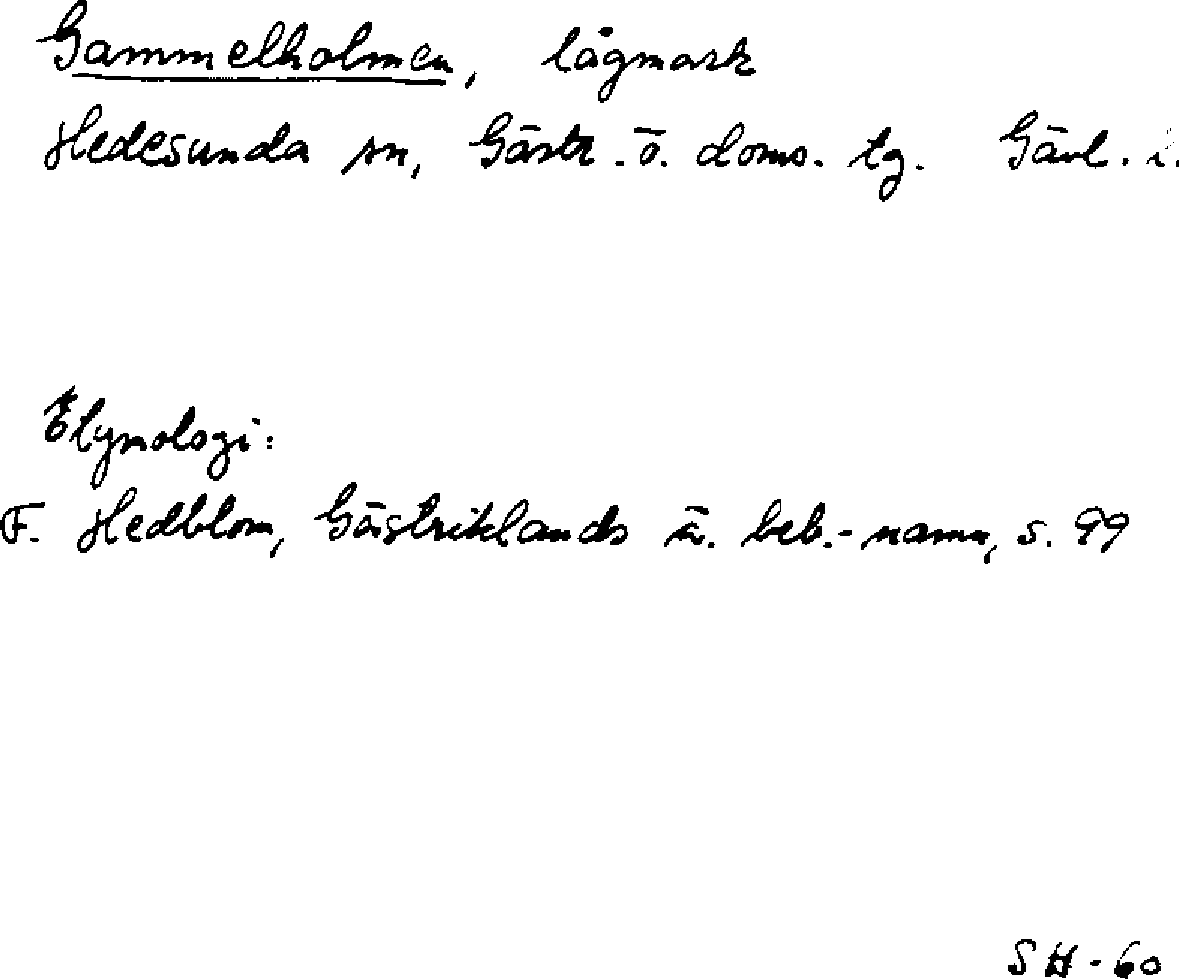 Gammelholmen, lågmark
Hedesunda sn, Gästr. ö. doms. tg. Gävl. l.
Etymologi:
F. Hedblom, Gästriklands ä. beb.-namn, s. 99
SH-60